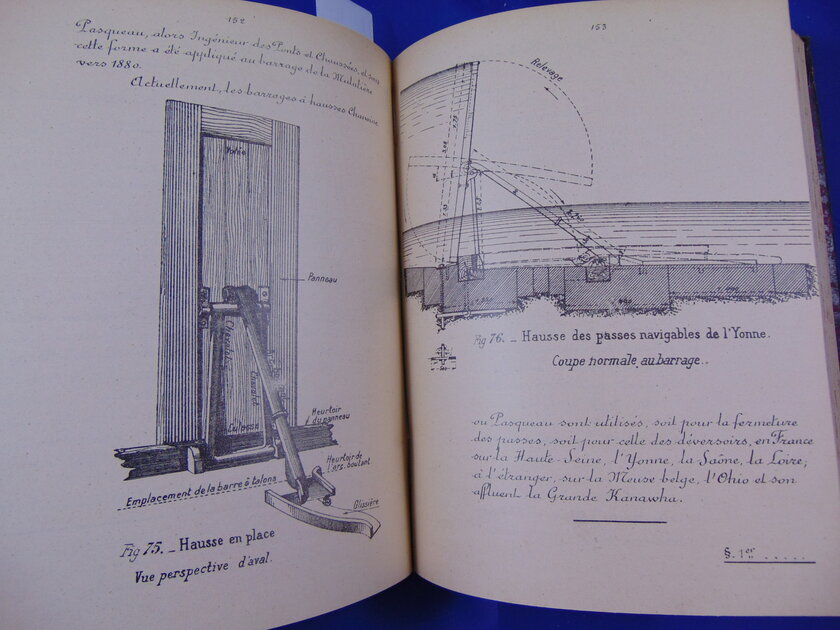 152
Pasqueau, alors Ingénieur des Ponts et Chaussées, et sous
cette forme a été appliqué au barrage de la Mulatière
vers 1880.
Actuellement, les barrages à hausses Chanoine
Volée
Panneau
Chevalet
Culasse
Heurtoir
du panneau
Heurtoir de
l'arc boutant
Emplacement de la barre à talons
Glissière
Fig 75. _ Hausse en place
Vue perspective d'aval.
153
Relevage
Fig 76. _ Hausse des passes navigables de l'Yonne.
Coupe normale au barrage..
ou Pasqueau sont utilisés, soit pour la fermeture
des passes, soit pour celle des déversoirs, en France
sur la Haute-Seine, l'Yonne, la Saône, la Loire;
à l'étranger, sur la Meuse belge, l'Ohio et son
affluent la Grande Kanawha.
§. 1er .....